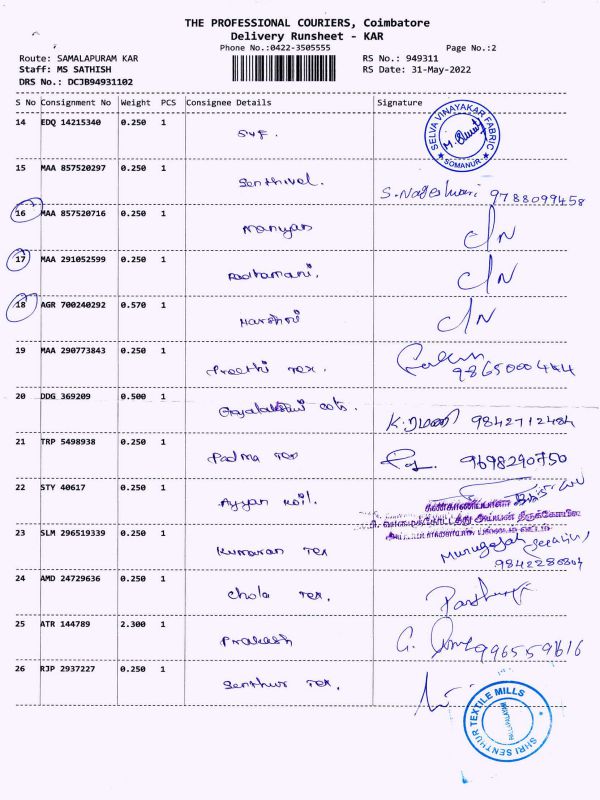 THE PROFESSIONAL COURIERS, Coimbatore
Delivery Runsheet - KAR
Phone No.:0422-3505555
Page No.:2
Route: SAMALAPURAM KAR
RS No.: 949311
Staff: MS SATHISH
RS Date: 31-May-2022
DRS No.: DCJB94931102
S No Consignment No Weight PCS Consignee Details Signature
14 EDQ 14215340 0.250 1 SVF.
SELVA VINAYAKAR FABRIC
SOMANUR
15 MAA 857520297 0.250 1 Senthivel. S. Nageshwari 9788099458
16 MAA 857520716 0.250 1 C/N
17 MAA 291052599 0.250 1 Radhamani. C/N
18 AGR 700240292 0.570 1 Harshni C/N
19 MAA 290773843 0.250 1 Preethi Tex.
20 DDG 369209 0.500 1 Gajalakshmi cots. K.ரமணி 9842712484
21 TRP 5498938 0.250 1 Padma Tex 9698290750
22 STY 40617 0.250 1 Ayyan Koil.
23 SLM 296519339 0.250 1 Kumaran Tex Murugajah
24 AMD 24729636 0.250 1 Chola Tex.
25 ATR 144789 2.300 1 Prakash
26 RJP 2937227 0.250 1 Senthur Tex.
SHRI SENTHUR TEXTILE MILLS